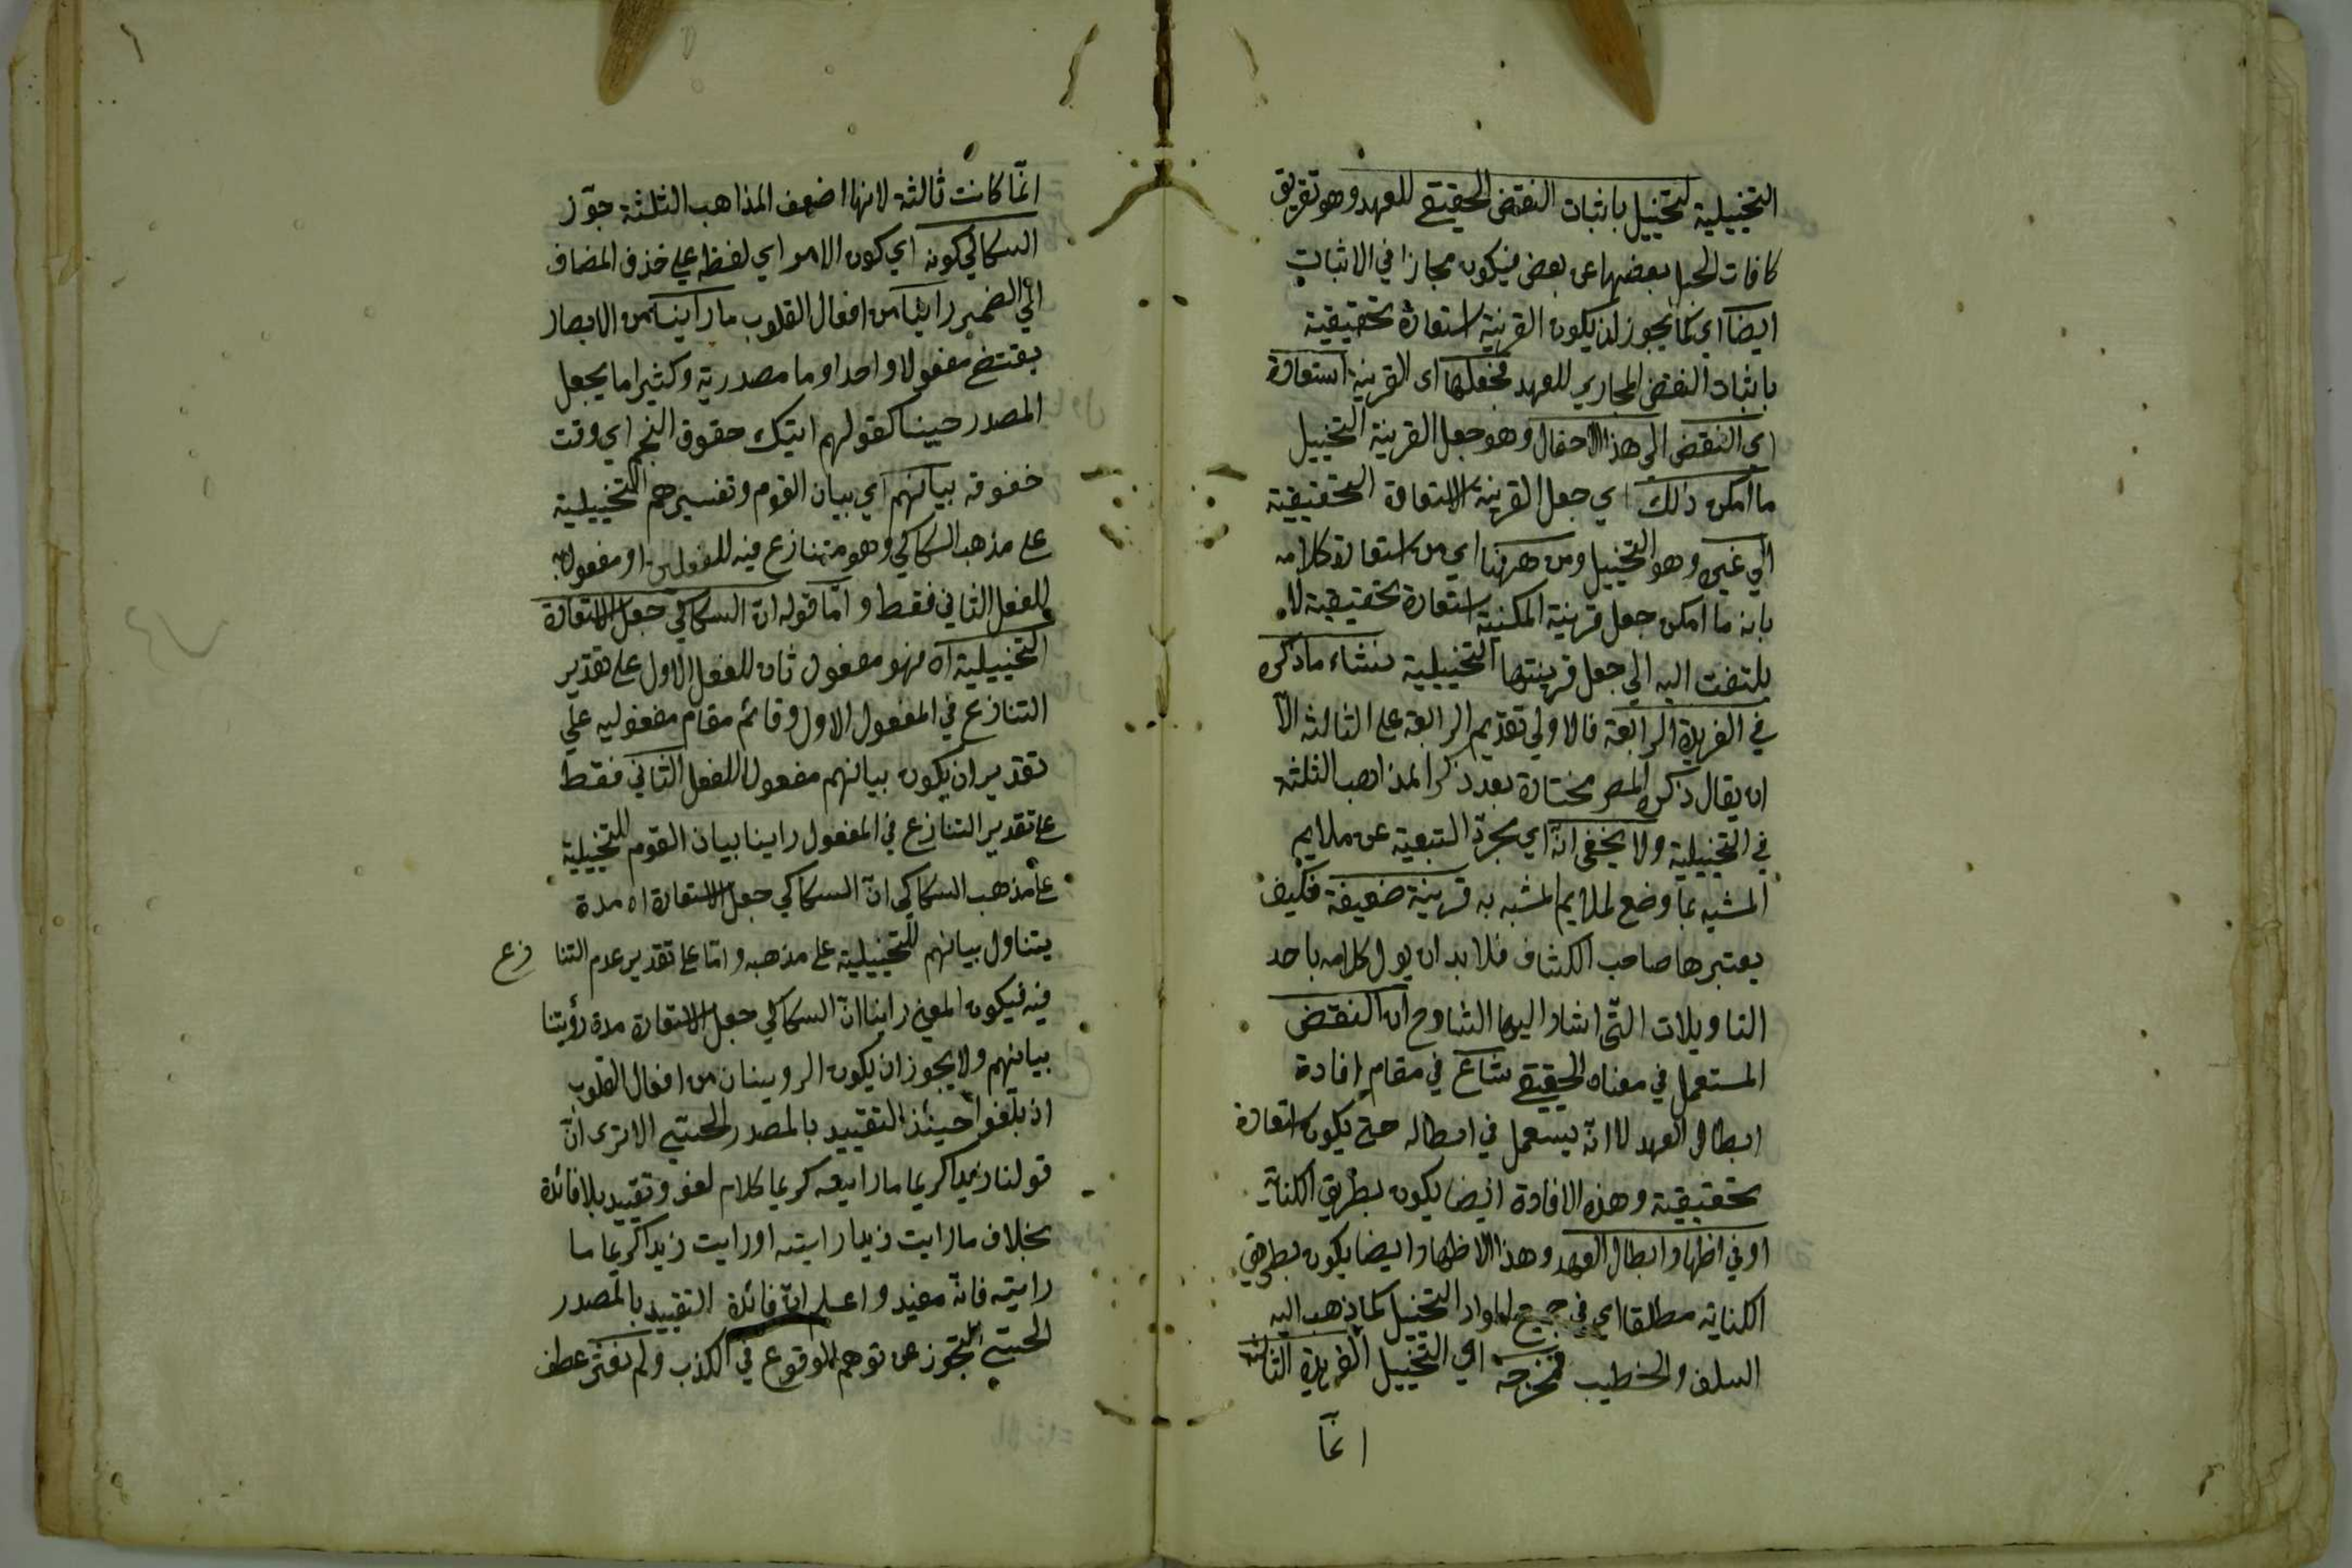 التخييلية لتخييل باثبات النقض الحقيقي للعهد وهو تفريق
كافات الحبل بعضها عن بعض فيكون مجازا في الاثبات
ايضا اي كما يجوز ان يكون القرينة استعارة تحقيقية
باثبات النقض المجازي للعهد فجعلها اى القرينة استعارة
اي النقض الى هذا الاحتمال وهو جعل القرينة التخييل
ما امكن ذلك اي جعل القرينة الاستعارة التحقيقية
الي غيره وهو التخييل ومن ههنا اي من استعارة كلامه
بانه ما امكن جعل قرينة المكنية استعارة تحقيقية لا
يلتفت اليه الي جعل قرينتها التخييلية منشاء ما ذكره
في الفريدة الرابعة فالاولي تقديم الرابعة على الثالثه الا
ان يقال ذكره المصر مختارة بعد ذكر المذاهب الثلثة
في التخييلية ولا يخفى انه اي مجرد التبعية عن ملايم
المشبه بما وضع لملايم المشبه به قرينة ضعيفة فكيف
يعتبرها صاحب الكشاف فلا بد ان يول كلامه باحد
التاويلات التي اشار اليها الشارح ان النقض
المستعمل في معناه الحقيقي شاع في مقام افادة
ابطال العهد لا انه يستعمل في ابطاله حتي يكون استعارة
تحقيقية وهذه الافادة ايضا يكون بطريق الكناية
او في اظهار ابطال العهد وهذا الاظهار ايضا يكون بطريق
الكناية مطلقا اي في جميع المواد التخييل كما ذهب اليه
السلف والخطيب فتخرجه اي التخييل الفريدة الثالثة
انما
انما كانت ثالثة لانها اضعف المذاهب الثلثة جوز
السكاكي كونه اي كون الامر اي لفظه علي حذف المضاف
الي الضمير راينا من افعال القلوب ما راينا من الابصار
يقتضي مفعولا واحدا وما مصدرية وكثيرا ما يجعل
المصدر حينا كقولهم اتيتك حقوق النجم اي وقت
خفوقه بيانهم اي بيان القوم وتفسيرهم التخييلية
على مذهب السكاكي وهو متنازع فيه للفعلين او مفعول
للفعل الثاني فقط واما قوله ان السكاكي جعل الاستعارة
التخييلية اه فهو مفعول ثان للفعل الاول على تقدير
التنازع في المفعول الاول وقائم مقام مفعوليه علي
تقدير ان يكون بيانهم مفعولا للفعل الثاني فقط
على تقدير التنازع في المفعول راينا بيان القوم للتخييلية
على مذهب السكاكي ان السكاكي جعل الاستعارة اه مدة
يتناول بيانهم للتخييلية على مذهبه واما على تقدير عدم التنا زع
فيه فيكون المعني راينا ان السكاكي جعل الاستعارة مدة رؤيتنا
بيانهم ولا يجوز ان يكون الرويتان من افعال القلوب
اذ يلغوا حينئذ التقييد بالمصدر الحيني الا ترى ان
قولنا زيدا كريما ما رايته كريما كلام لغو وتقييد بلا فائدة
بخلاف ما رايت زيدا رايته او رايت زيدا كريما ما
رايته فانه مفيد واعلم ان فائدة التقييد بالمصدر
الحيني التجوز عن توهم الوقوع في الكذب ولم نعثر عطف